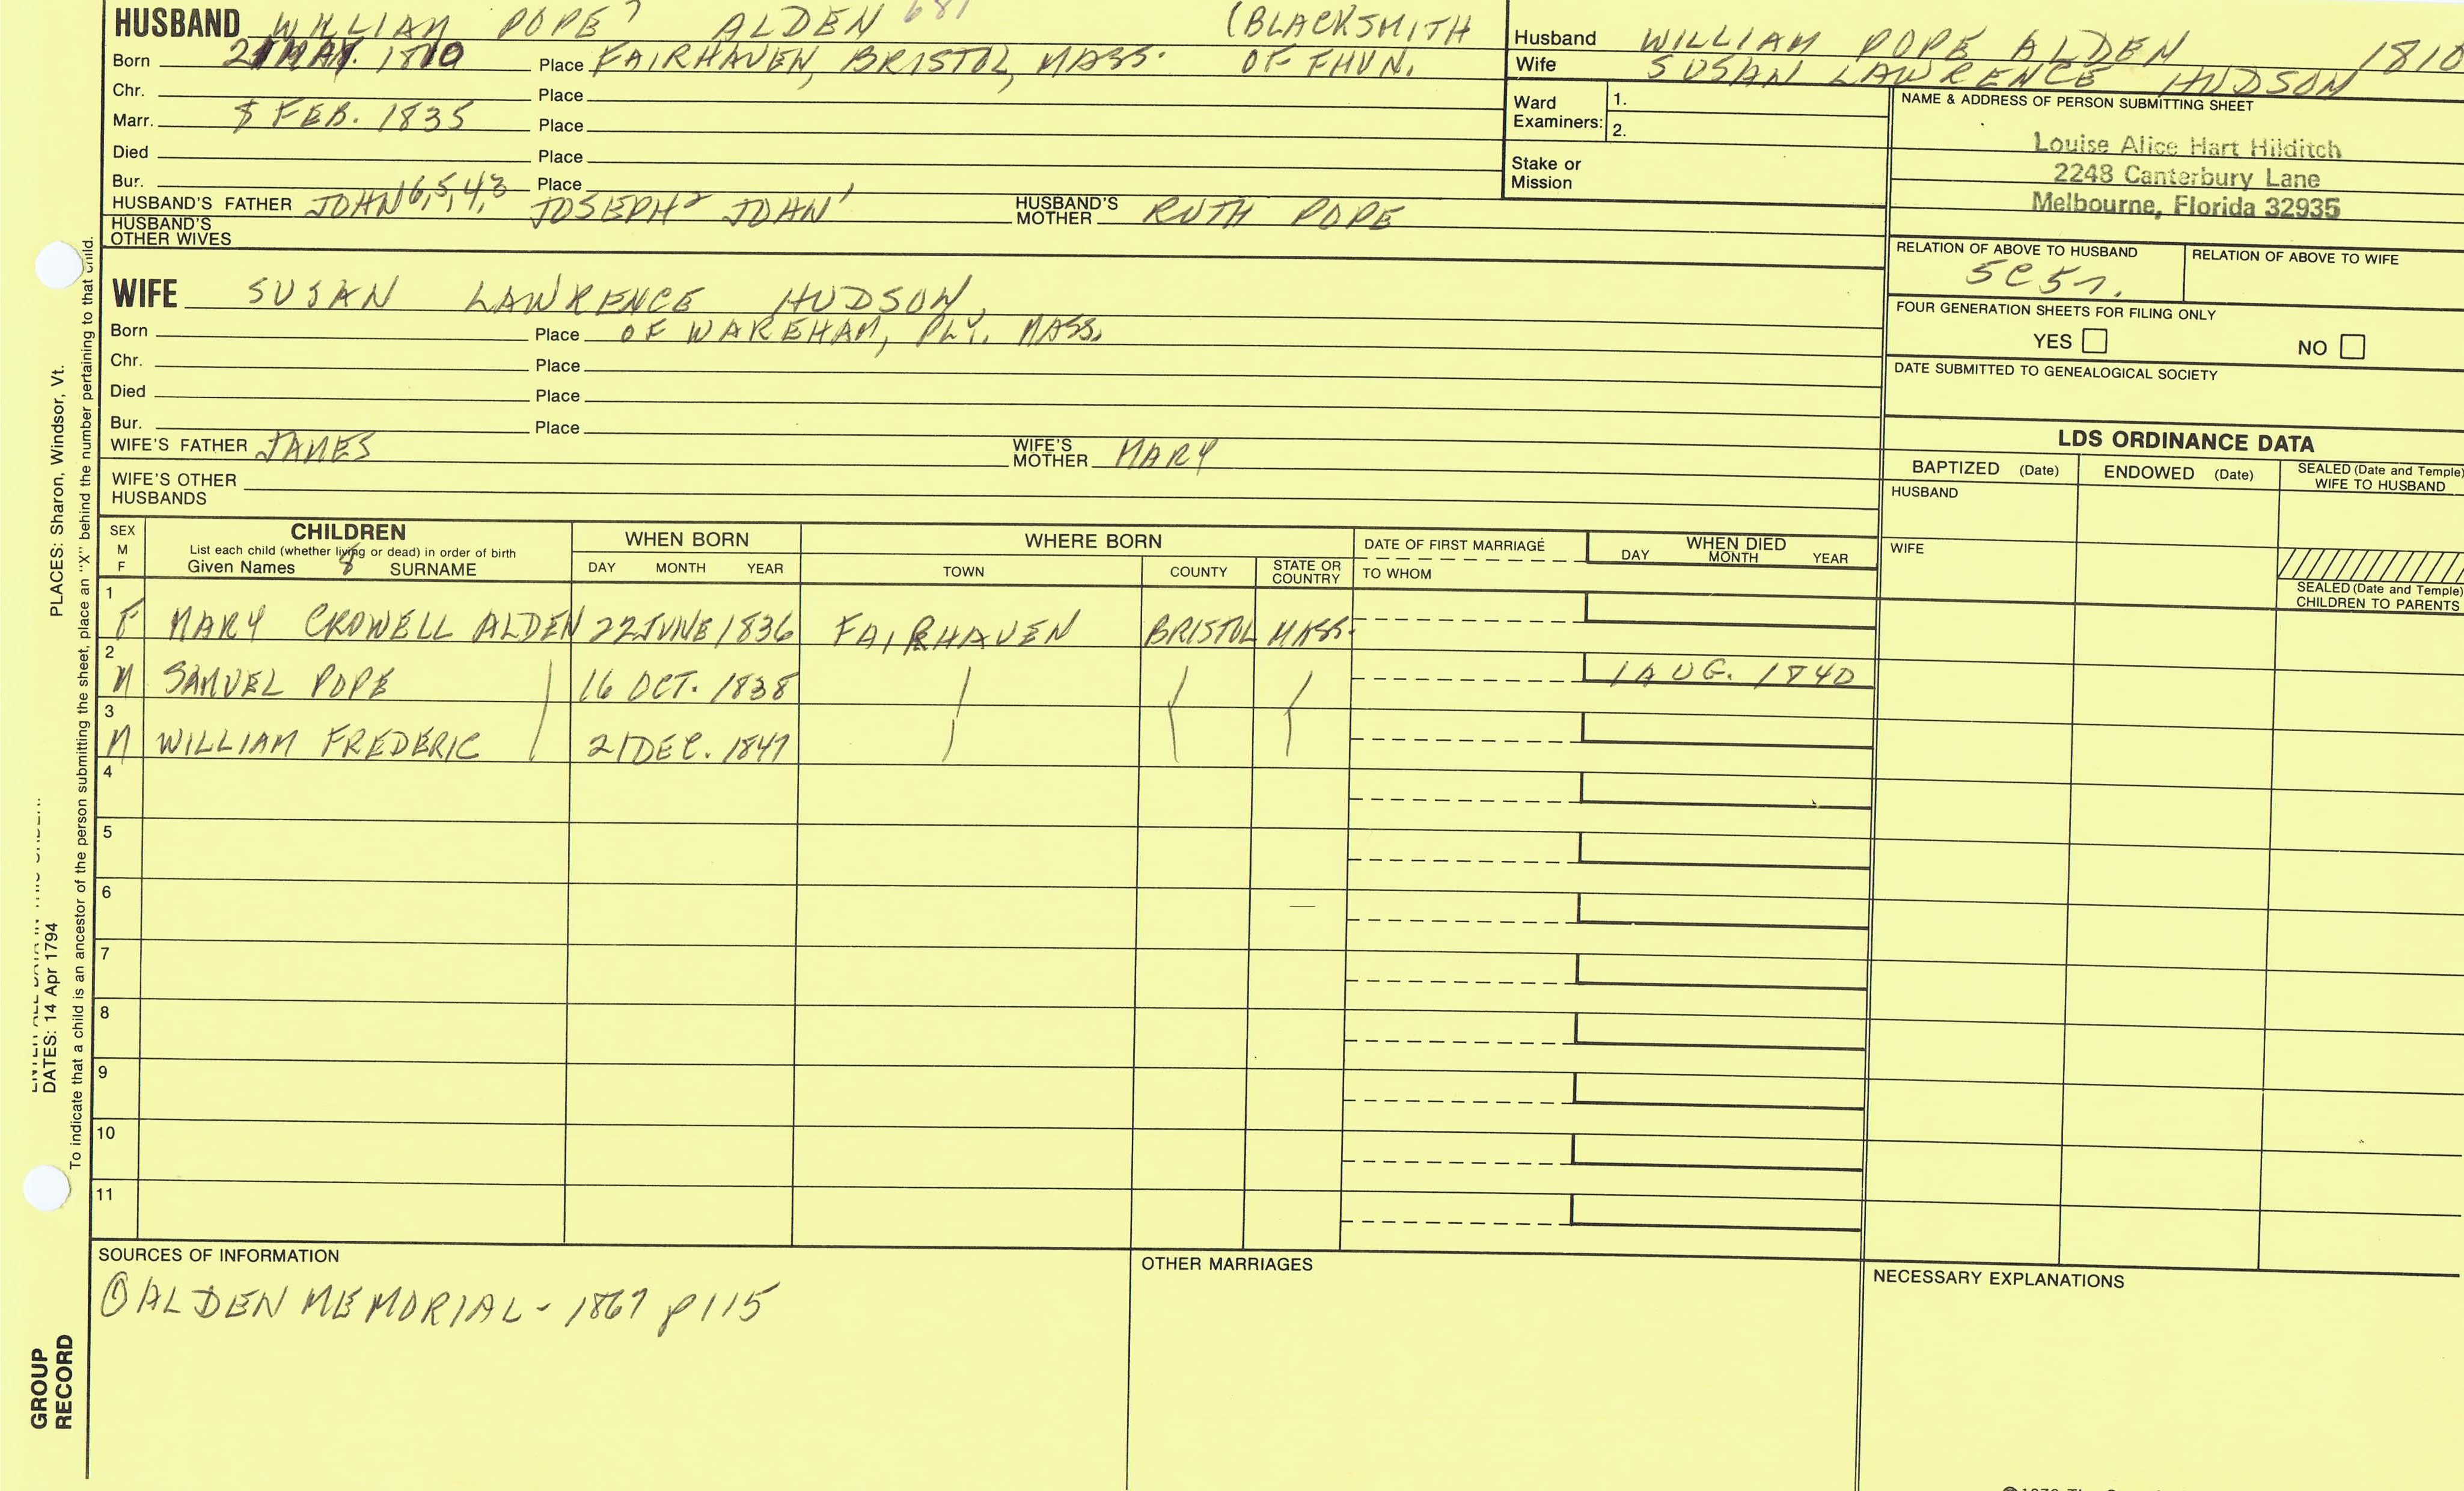 HUSBAND WILLIAM POPE 7 ALDEN 681 (BLACKSMITH
Born MAY. 1810 Place FAIRHAVEN, BRISTOL, MASS. OF FHVN.
Chr. Place
Marr. FEB. 1835 Place
Died Place
Bur. Place
HUSBAND'S FATHER JOHN 6,5,4,3 JOSEPH 2 JOHN 1 HUSBAND'S MOTHER RUTH POPE
HUSBAND'S OTHER WIVES
Husband WILLIAM POPE ALDEN 1810
Wife SUSAN LAWRENCE HUDSON
Ward Examiners: 1.
2.
Stake or Mission
NAME & ADDRESS OF PERSON SUBMITTING SHEET
Louise Alice Hart Hilditch
2248 Canterbury Lane
Melbourne, Florida 32935
RELATION OF ABOVE TO HUSBAND RELATION OF ABOVE TO WIFE
5C5r.
FOUR GENERATION SHEETS FOR FILING ONLY
YES NO
DATE SUBMITTED TO GENEALOGICAL SOCIETY
WIFE SUSAN LAWRENCE HUDSON
Born Place OF WAREHAM, PLY. MASS.
Chr. Place
Died Place
Bur. Place
WIFE'S FATHER JAMES WIFE'S MOTHER MARY
WIFE'S OTHER HUSBANDS
LDS ORDINANCE DATA
BAPTIZED (Date) ENDOWED (Date) SEALED (Date and Temple) WIFE TO HUSBAND
HUSBAND
WIFE
SEALED (Date and Temple) CHILDREN TO PARENTS
SEX M F CHILDREN WHEN BORN WHERE BORN DATE OF FIRST MARRIAGE WHEN DIED
List each child (whether living or dead) in order of birth
Given Names SURNAME DAY MONTH YEAR TOWN COUNTY STATE OR COUNTRY TO WHOM DAY MONTH YEAR
1 F MARY CROWELL ALDEN 22 JUNE 1836 FAIRHAVEN BRISTOL MASS.
2 M SAMUEL POPE 16 OCT. 1838 1 AUG. 1840
3 M WILLIAM FREDERIC 21 DEC. 1847
4
5
6
7
8
9
10
11
SOURCES OF INFORMATION
① ALDEN MEMORIAL - 1867 p115
OTHER MARRIAGES
NECESSARY EXPLANATIONS
PLACES: Sharon, Windsor, Vt.
DATES: 14 Apr 1794
To indicate that a child is an ancestor of the person submitting the sheet, place an "X" behind the number pertaining to that child.
GROUP
RECORD